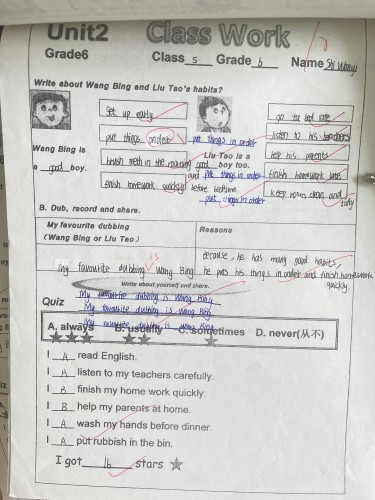 Unit2 Class Work
Grade6 Class 5 Grade 6 Name
Write about Wang Bing and Liu Tao's habits?
Set up early
go to bed late
put things onder put things in order
listen to his teachers
Wang Bing is
a good boy.
brush teeth in the morning
and before bedtime
finish homework quickly
Liu Tao is a
good boy too.
help his parents
put things in order
finish homework late
put things in order
keep room clean and tidy
B. Dub, record and share.
My favourite dubbing
(Wang Bing or Liu Tao)
Reasons
my favourite dubbing is Wang Bing
Because, he has many good habits,
he puts his things in order and finish homework
quickly.
Write about yourself and share.
My favourite dubbing is Wang Bing
My favourite dubbing is Wang Bing
My favourite dubbing is Wang Bing
Quiz
A. always B. usually C. sometimes D. never(从不)
I A read English.
I A listen to my teachers carefully.
I B finish my home work quickly.
I B help my parents at home.
I A wash my hands before dinner.
I A put rubbish in the bin.
I got 16 stars